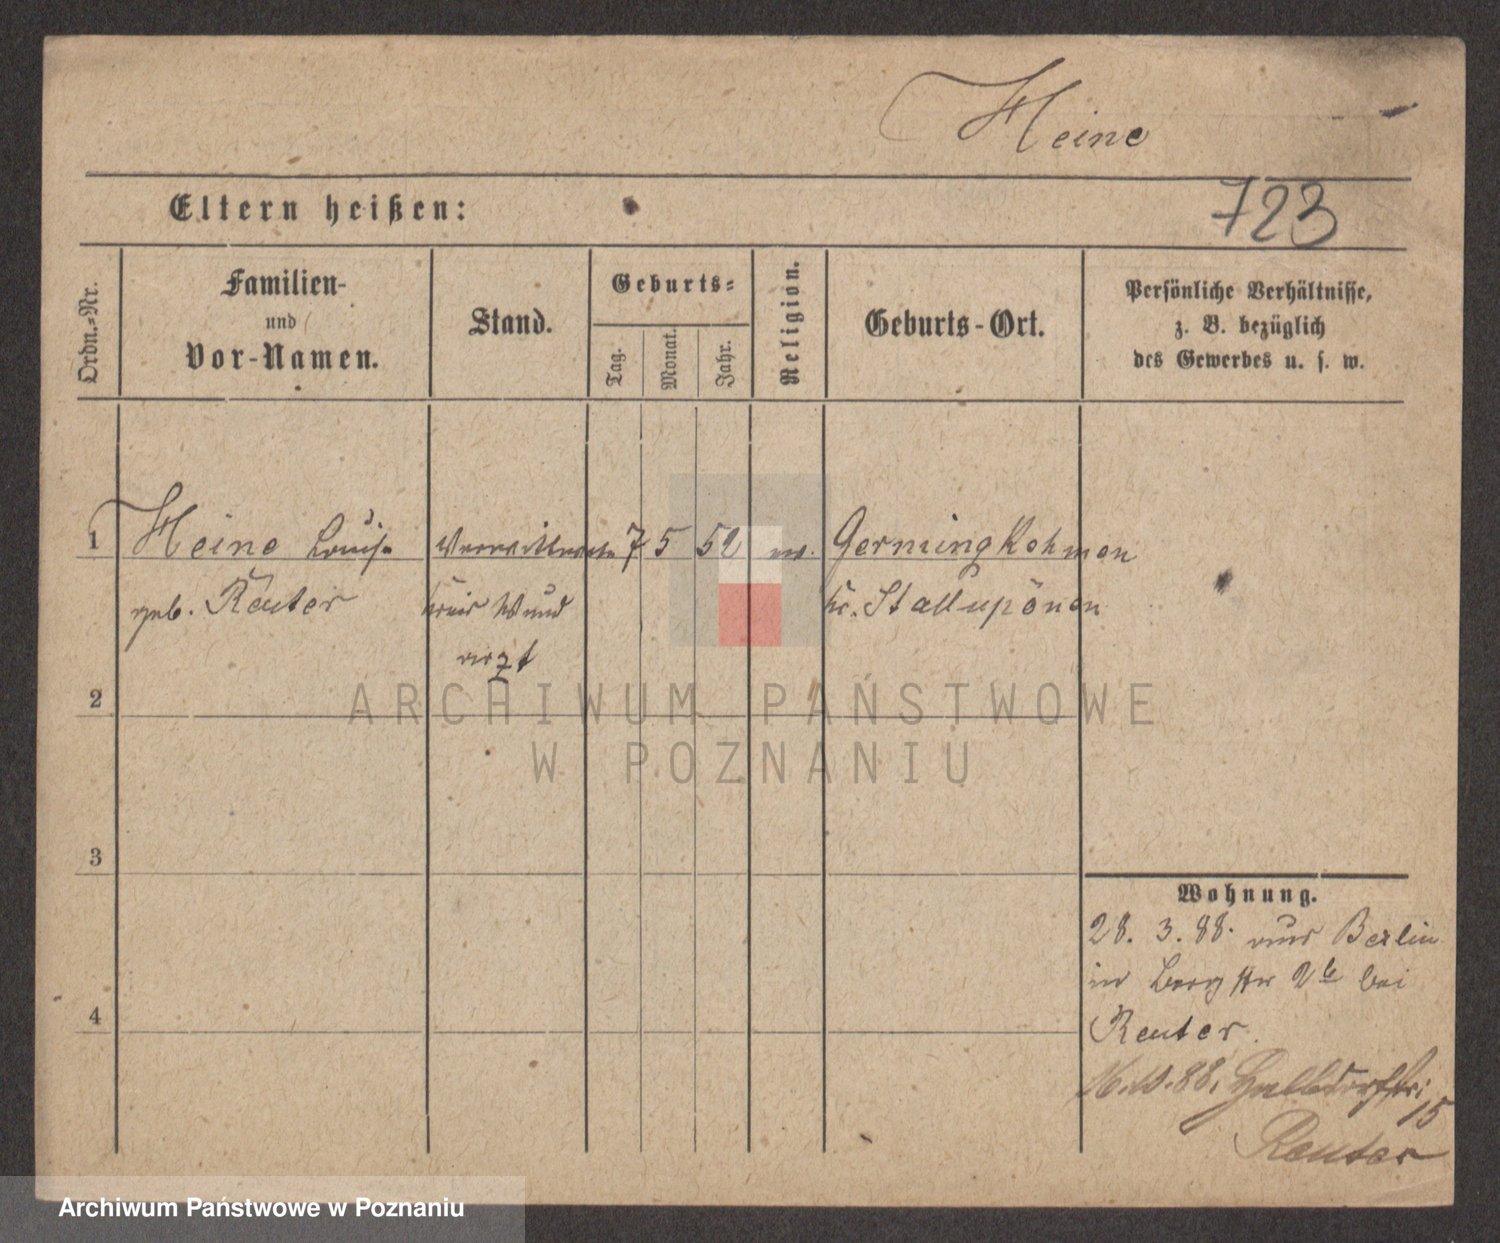 Heine
Eltern heißen:
723
Ordn.-Nr.
Familien-
und
Vor-Namen.
Stand.
Geburts-
Tag.
Monat.
Jahr.
Religion.
Geburts-Ort.
Persönliche Verhältnisse,
z. B. bezüglich
des Gewerbes u. s. w.
1 Heine Louise 7 5 52 Gerning Kehmen
geb. Reuter Kr. Stallupönen
arzt
2
3
4
Wohnung.
28. 3. 88. aus Berlin
in Bergstr 2b bei
Reuter.
88. Halbdorfstr:
15
Reuter
ARCHIWUM PAŃSTWOWE
W POZNANIU
Archiwum Państwowe w Poznaniu